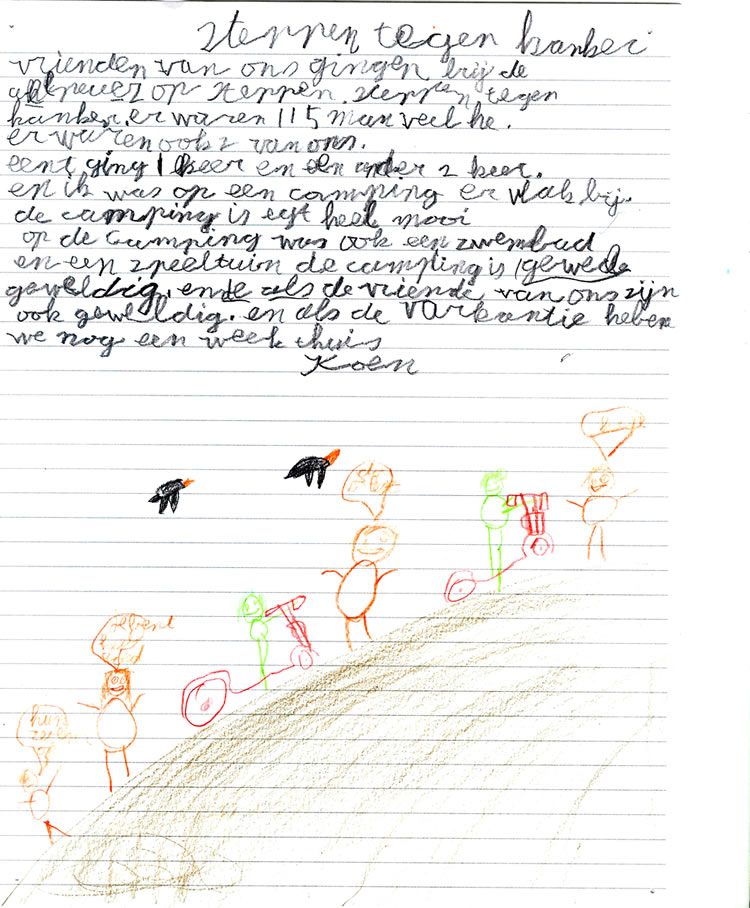 steppen tegen kanker
vrienden van ons gingen bij de
op steppen. steppen tegen
kanker. er waren 115 man veel he.
er waren ook 2 van ons.
eent ging 1 keer en een ander 2 keer.
en ik was op een camping er vlak bij.
de camping is egt heel mooi
op de camping was ook een zwembad
en een speeltuin de camping is
geweldig. als de vriende van ons zijn
ook geweldig. en als de varkantie heben
we nog een week thuis
Koen